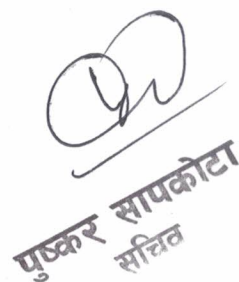 पुष्कर सापकोटा
सचिव